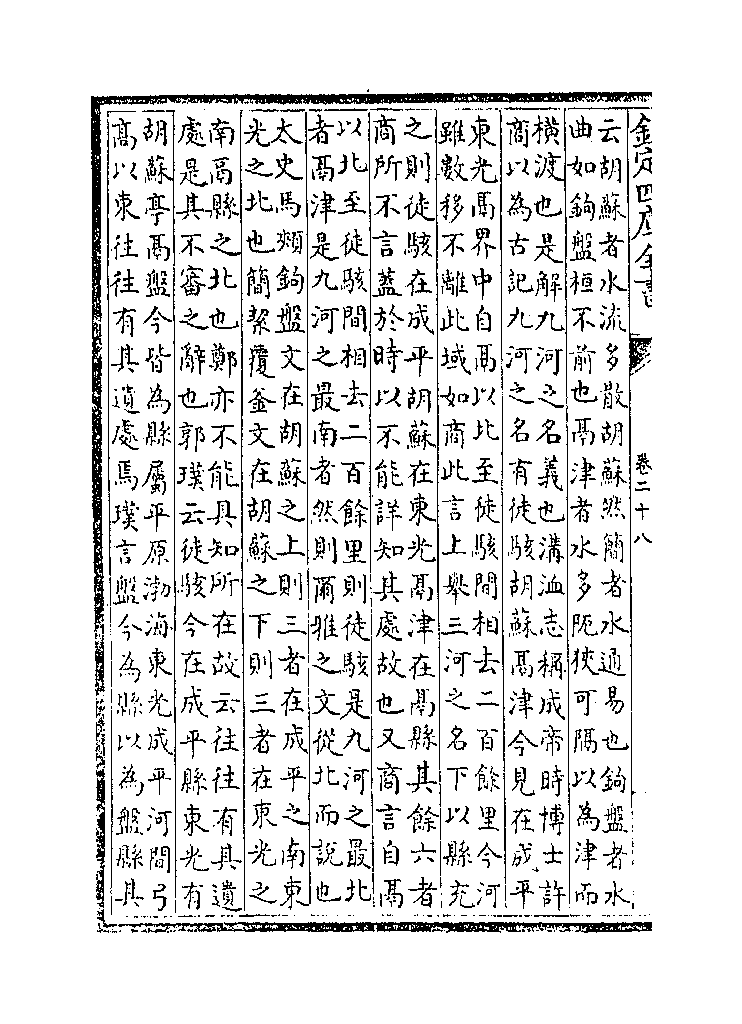 欽定四庫全書
卷二十八
云胡蘇者水流多散胡蘇然簡者水通易也鉤盤者水
曲如鉤盤桓不前也鬲津者水多阨狹可隔以為津而
橫渡也是解九河之名義也溝洫志稱成帝時博士許
商以為古記九河之名有徒駭胡蘇鬲津今見在成平
東光鬲界中自鬲以北至徒駭間相去二百餘里今河
雖數移不離此域如商此言上舉三河之名下以縣充
之則徒駭在成平胡蘇在東光鬲津在鬲縣其餘六者
商所不言蓋於時以不能詳知其處故也又商言自鬲
以北至徒駭間相去二百餘里則徒駭是九河之最北
者鬲津是九河之最南者然則爾雅之文從北而說也
太史馬頰鉤盤文在胡蘇之上則三者在成平之南東
光之北也簡絜覆釜文在胡蘇之下則三者在東光之
南鬲縣之北也鄭亦不能具知所在故云往往有其遺
處是其不審之辭也郭璞云徒駭今在成平縣東光有
胡蘇亭鬲盤今皆為縣屬平原渤海東光成平河間弓
高以東往往有其遺處焉璞言盤今為縣以為盤縣其